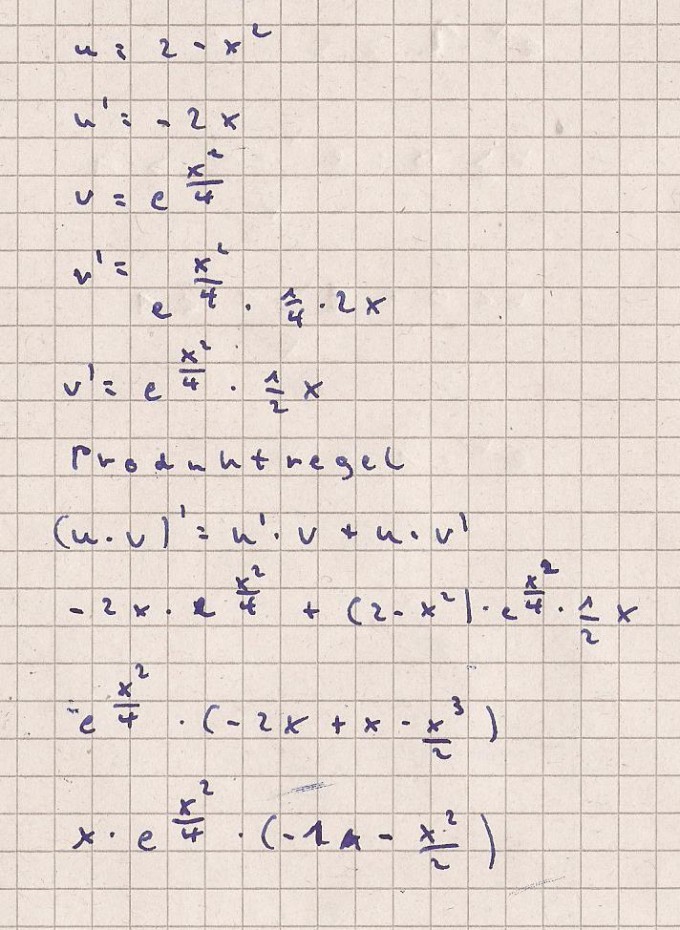 u = 2 - x²
u' = - 2 x
v = e^(x²/4)
v' = e^(x²/4) · 1/4 · 2 x
v' = e^(x²/4) · 1/2 x
Produktregel
(u · v)' = u' · v + u · v'
- 2 x · e^(x²/4) + (2 - x²) · e^(x²/4) · 1/2 x
= e^(x²/4) · (- 2x + x - x³/2)
x · e^(x²/4) · (- 1 - x²/2)